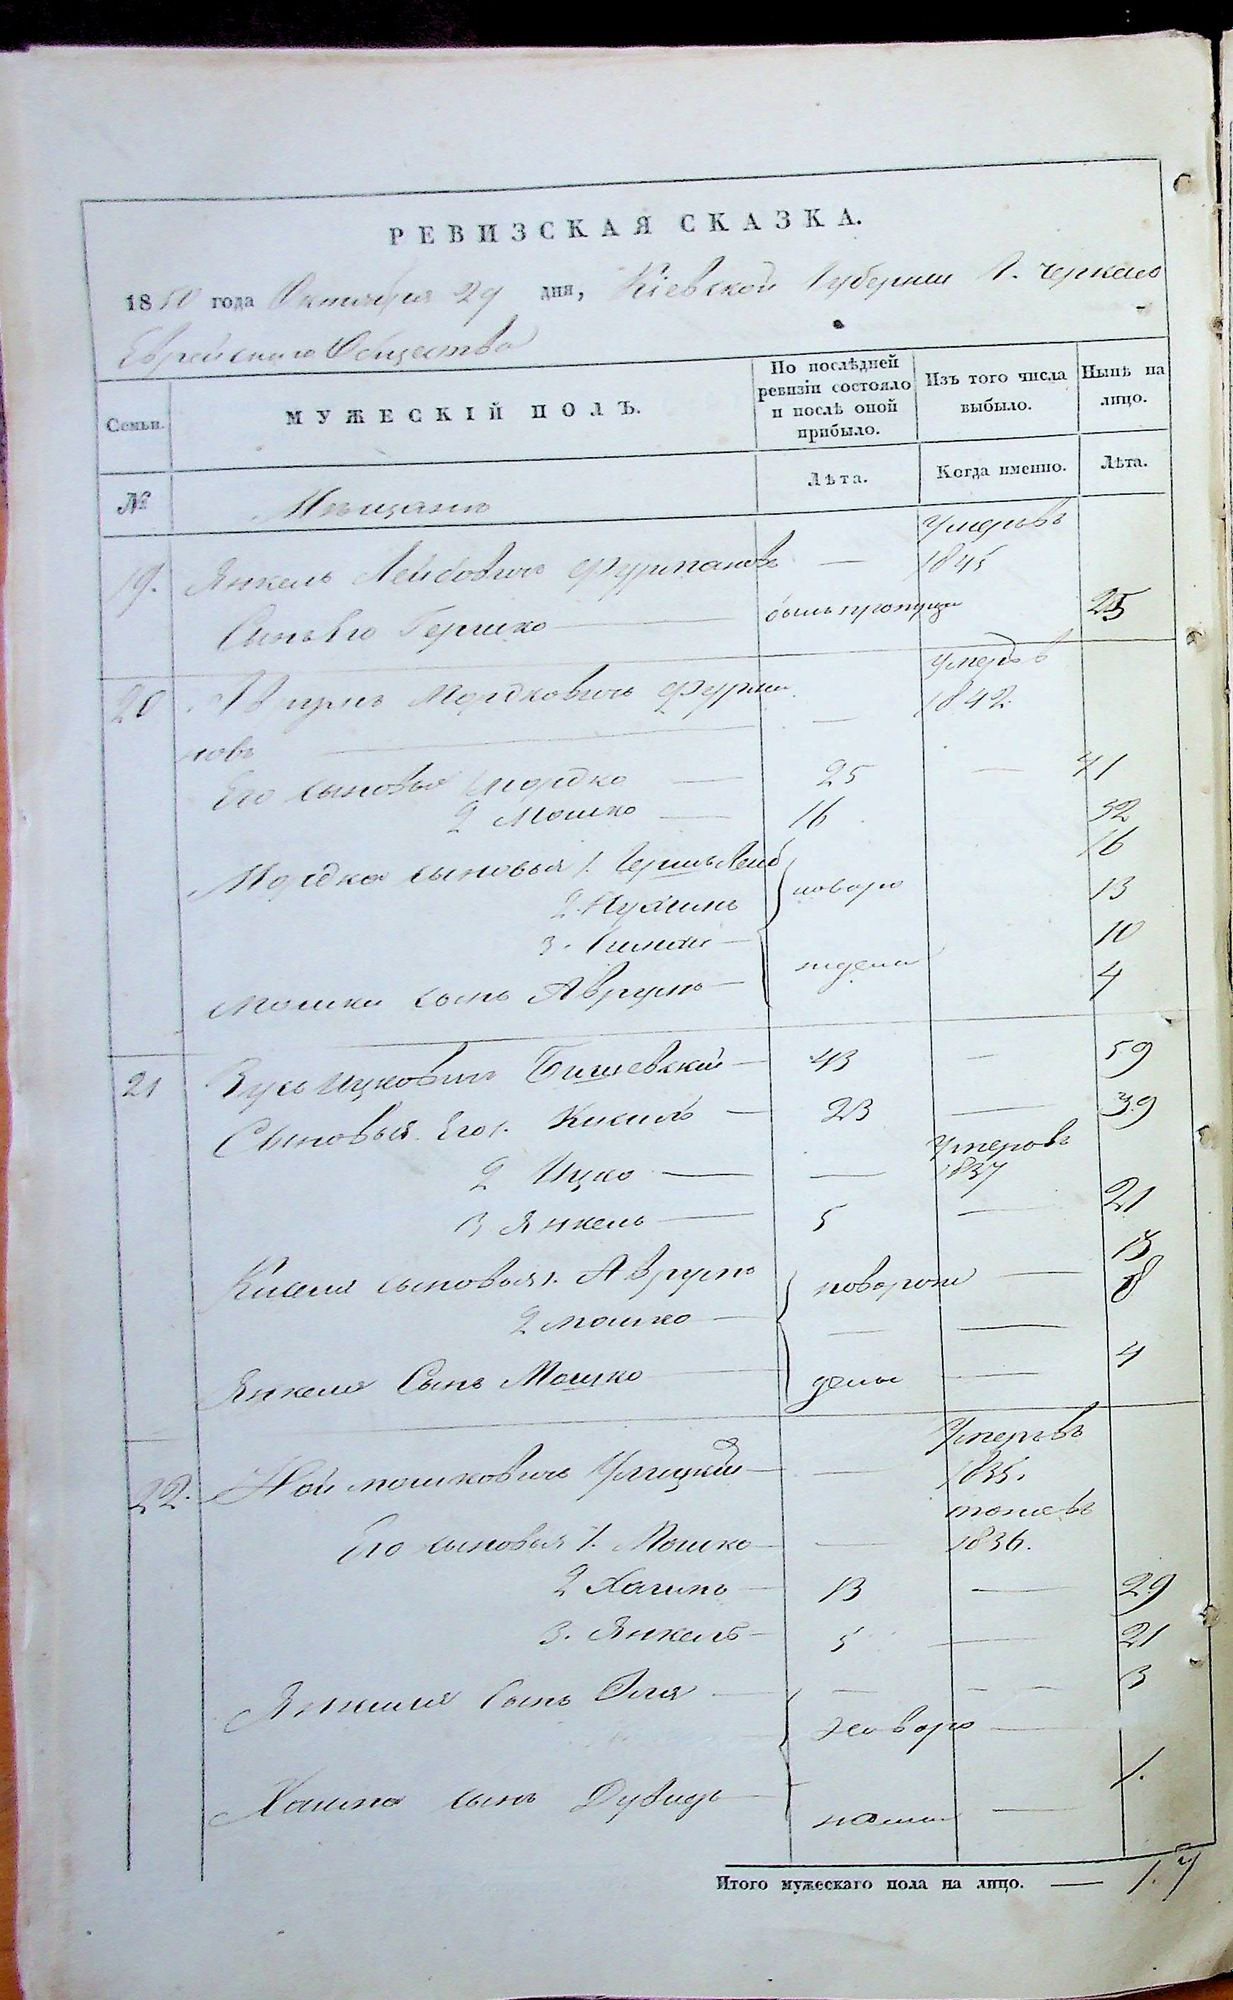 РЕВИЗСКАЯ СКАЗКА.
1850 года Октября 29 дня, Кіевской Губерніи Г. Черкасъ
Еврейскаго Общества
Семьи. МУЖЕСКІЙ ПОЛЪ. По послѣдней ревизіи состояло и послѣ оной прибыло. Изъ того числа выбыло. Нынѣ на лицо.
№ Мещане Лѣта. Когда именно. Лѣта.
19. Янкель Лейбовичъ Фурмановъ — умеръ въ 1845
Сынъ его Гершко — былъ пропущ 25
20 Аврумъ Мордковичъ Фурма
новъ — умеръ въ 1842
Его сыновья Мордко — 25 — 41
2 Мошко — 16 32
Мордка сыновья 1. Гершъ Лейб 16
2. Нухимъ новоро 13
3. — 10
Мошки сынъ Аврумъ — ждены 4
21 Зусь Ицковичъ — 43 — 59
Сыновья Его 1. Кисиль — 23 — 39
2 Ицко — — умеръ въ 1837
3 Янкель — 5 — 21
Кисиля сыновья 1. Аврумъ новорож — 13
2 Мошко — — — 8
Янкеля Сынъ Мошко — дены — 4
22. Ной Мошковичъ — — умеръ въ 1835.
Его сыновья 1. Мошко — — тоже въ 1836.
2 Хаимъ — 13 — 29
3. Янкель — 5 — 21
Янкеля Сынъ Эля — — — 3
новоро —
Хаима сынъ Дувидъ — — 1.
Итого мужескаго пола на лицо. — 17